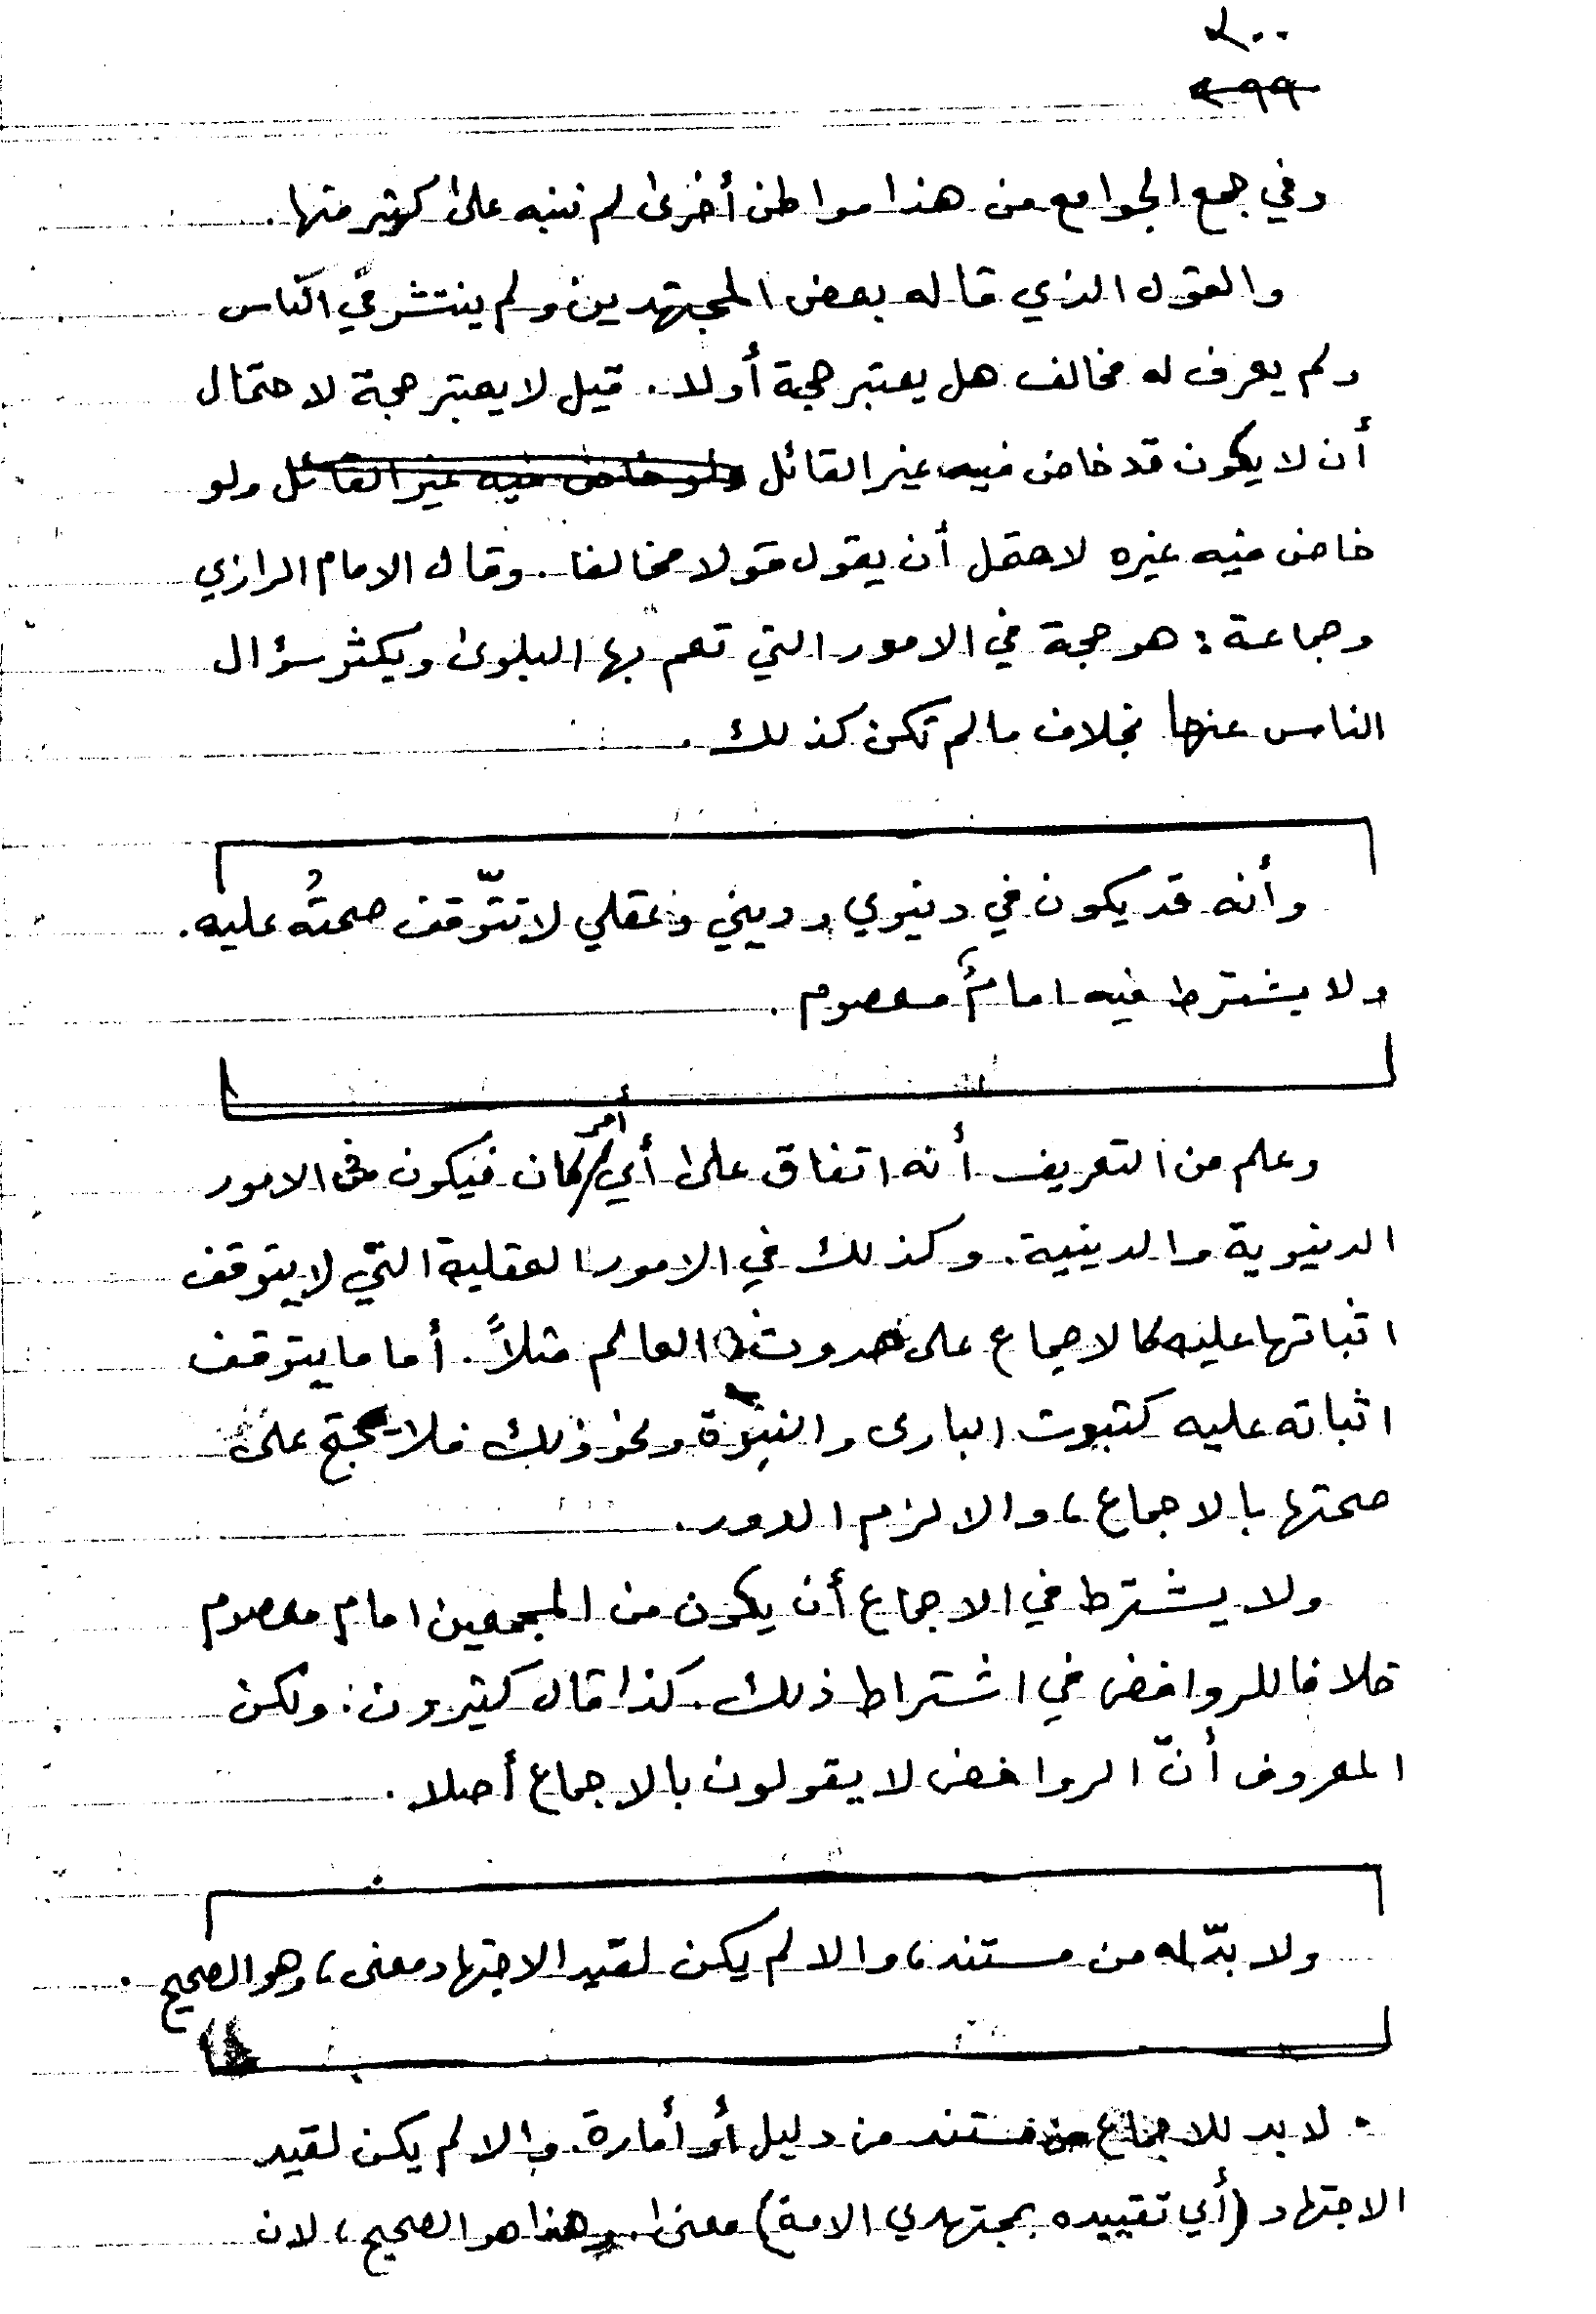 ٢٠٠
٢٩٩
وفي جمع الجوامع من هذا مواطن أخرى لم ننبه على كثير منها.
والقول الذي قاله بعض المجتهدين ولم ينتشر في الناس
ولم يعرف له مخالف هل يعتبر حجة أولا. قيل لا يعتبر حجة لاحتمال
أن لا يكون قد خاض فيه غير القائل ولو خاض فيه غير القائل ولو
خاض فيه غيره لاحتمل أن يقول قولا مخالفا. وقال الامام الرازي
وجماعة: هو حجة في الامور التي تعم بها البلوى ويكثر سؤال
الناس عنها بخلاف ما لم تكن كذلك.
وأنه قد يكون في دنيوي وديني وعقلي لا تتوّقف صحتُه عليه.
ولا يشترط فيه امامٌ معصوم.
وعلم من التعريف أنه اتفاق على أي أمر كان فيكون في الامور
الدنيوية والدينية. وكذلك في الامور العقلية التي لا يتوقف
اثباتها عليه كالاجماع على حدوث العالم مثلاً. أما ما يتوقف
اثباته عليه كثبوت البارى والنبوّة ونحو ذلك فلا يحتج على
صحتها بالاجماع، والا لزم الدور.
ولا يشترط في الاجماع أن يكون من المجمعين امام معصوم
خلافا للروافض في اشتراط ذلك. كذا قال كثيرون: ولكن
المعروف أنّ الروافض لا يقولون بالاجماع أصلا.
ولا بدّ له من مستند، والا لم يكن لقيد الاجتهاد معنى، وهو الصحيح.
• لا بد للاجماع من مستند من دليل أو أمارة. والا لم يكن لقيد
الاجتهاد (أي تقييده بمجتهدي الامة) معنى. وهذا هو الصحيح، لان